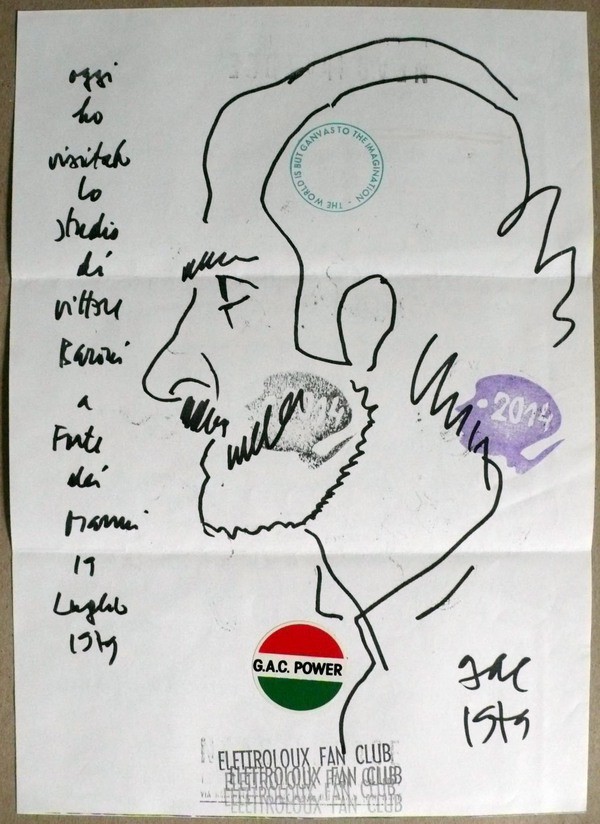 oggi
ho
visitato
lo
studio
di
vittore
Baroni
a
Forte
dei
Marmi
19
Luglio
1979
THE WORLD IS BUT CANVAS TO THE IMAGINATION -
2014
2014
G.A.C. POWER
1979
ELETTROLOUX FAN CLUB
ELETTROLOUX FAN CLUB
ELETTROLOUX FAN CLUB
ELETTROLOUX FAN CLUB